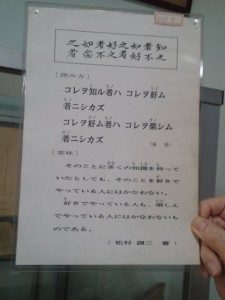 知之
者不
如好
之者
好之
者不
如
之者
〔読み方〕
コレヲ知ル者ハ コレヲ好ム
者ニシカズ
コレヲ好ム者ハ コレヲ楽シム
者ニシカズ
〔意味〕
そのことに多くの知識を持って
いたとしても、そのことを好きで
やっている人にはかなわない。
好きでやっている人も、楽しん
でやっている人にはかなわないも
のである。
(松村 謙三 書)